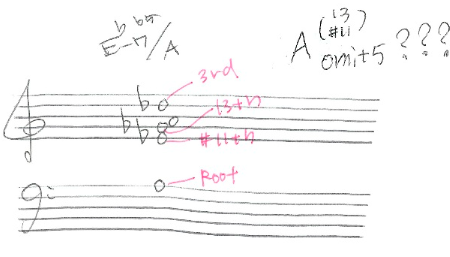 E♭-7♭5/A
A(13 #11) omit5 ???
3rd
13th
#11th
Root